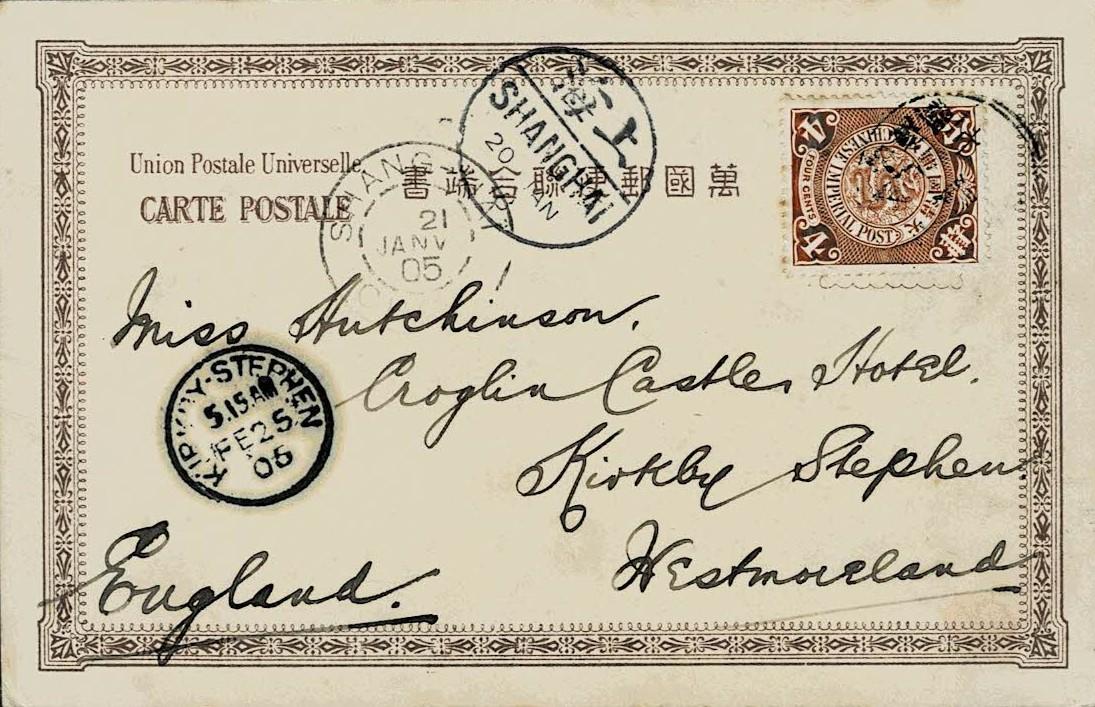 Union Postale Universelle
CARTE POSTALE
書端合聯便郵國萬
SHANGHAI
21
JANV
05
上海
SHANGHAI
20 JAN
4 4
FOUR CENTS
CHINESE IMPERIAL POST
4
Miss Hutchinson.
Croglin Castle Hotel.
Kirkby Stephen
Westmoreland
England.
KIRKBY-STEPHEN
5.15 AM
FE 25
05